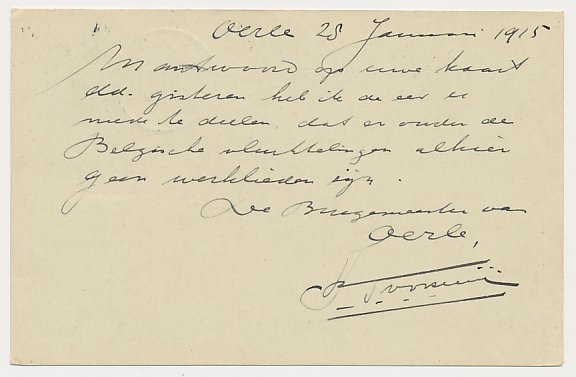 Oerle 28 Januari 1915
In antwoord op uwe kaart
dd. gisteren heb ik de eer u
mede te deelen, dat er onder de
Belgische vluchtelingen alhier
geen werklieden zijn.
De Burgemeester van
Oerle,